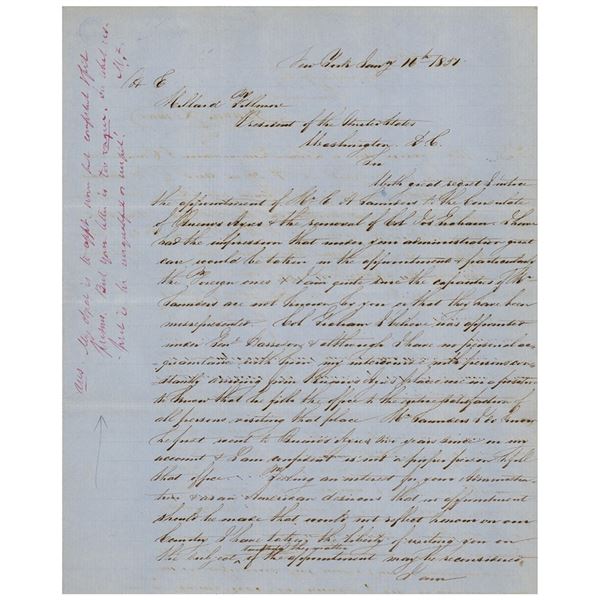 New York Jany 16th 1851
H. E.
Millard Fillmore
President of the United States
Washington D. C.
Sir
With great regret I notice
the appointment of Mr. E. A. Saunders to the Consulate
of Buenos Ayres & the removal of Col Jos Graham. I have
had the impression that under your administration great
care would be taken in the appointments & particularly
the Foreign ones & I am quite sure the capacities of Mr
Saunders are not known to you or that they have been
misrepresented. Col Graham I believe was appointed
under & although I have no personal ac-
quaintance with him my intercourse with persons con-
stantly arriving from Buenos Ayres place me in a position
to know that he fills the office to the entire satisfaction of
all persons visiting that place. Mr Saunders I do know
he first went to Buenos Ayres two years since on my
account & I am confident is not a proper person to fill
that office. Feeling an interest for your Administra-
tion & as an American desirous that no appointment
should be made that would not reflect honor on our
Country I have taken the liberty of writing you on
the subject, of the appointment may be reconsidered
I am
Ans. My object is to appt. none but competent & fit
Persons. But your letter is too vague. In what res-
pect is he unqualified or unfit?
M. F.